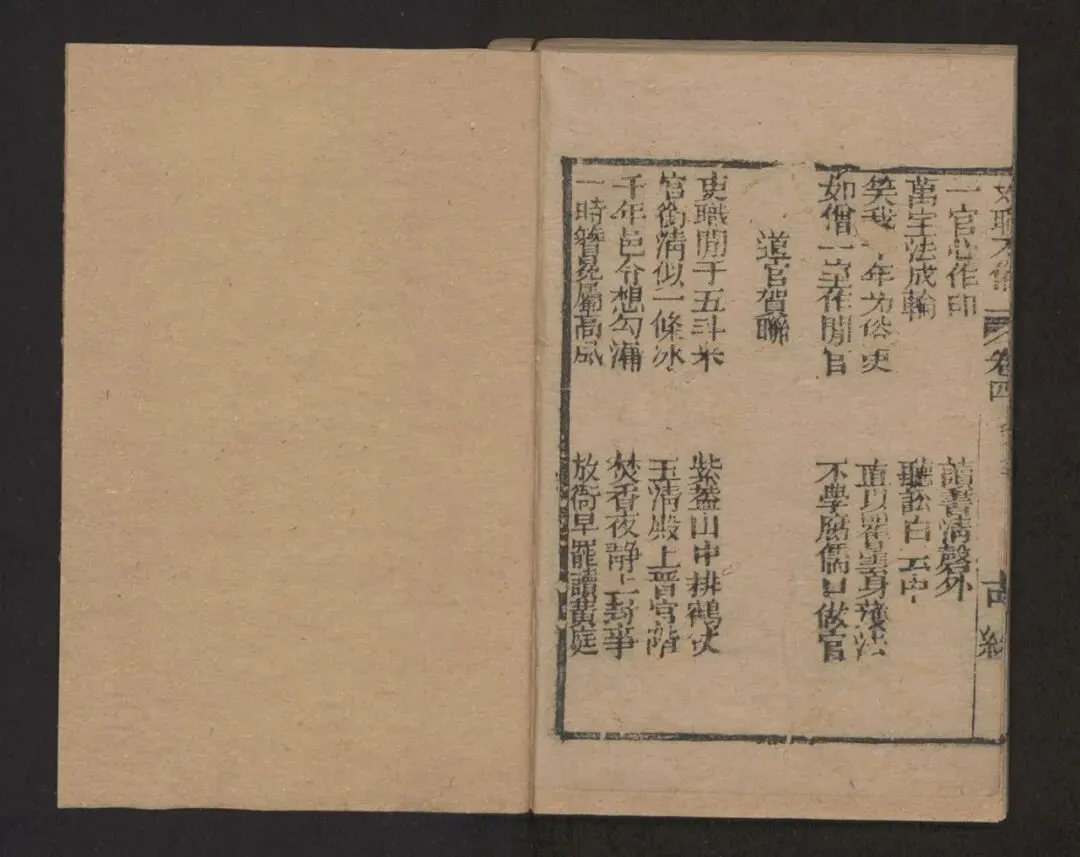 卷四
一官心作印
讀書清磬外
萬字法成輪
聽訟白雲中
笑我十年為俗吏
直以眾身護法
如僧一室在閒官
不學腐儒口做官
道官賀聯
吏職閒于五斗米
紫蓋山中排鶴仗
官銜清似一條冰
玉清殿上晉官階
千年邑令想勾漏
焚香夜靜上封事
一時簪冕屬高風
放衙早罷讀黃庭